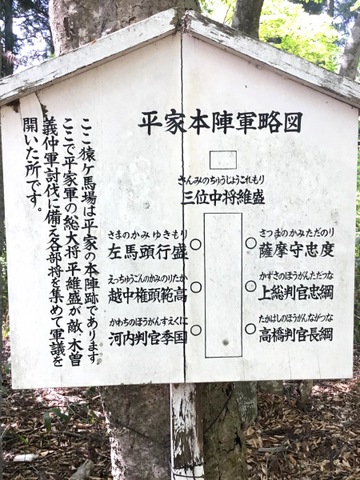 平家本陣軍略図
さんみのちゅうじょうこれもり
三位中将維盛
さつまのかみただのり
薩摩守忠度
かずさのほうがんただつな
上総判官忠綱
たかはしのほうがんながつな
高橋判官長綱
さまのかみゆきもり
左馬頭行盛
えっちゅうごんのかみのりたか
越中権頭範高
かわちのほうがんすえくに
河内判官季国
ここ猿ケ馬場は平家の本陣跡であります
ここで平家軍の総大将平維盛が敵、木曽
義仲軍討伐に備え各部将を集めて軍議を
開いた所です。